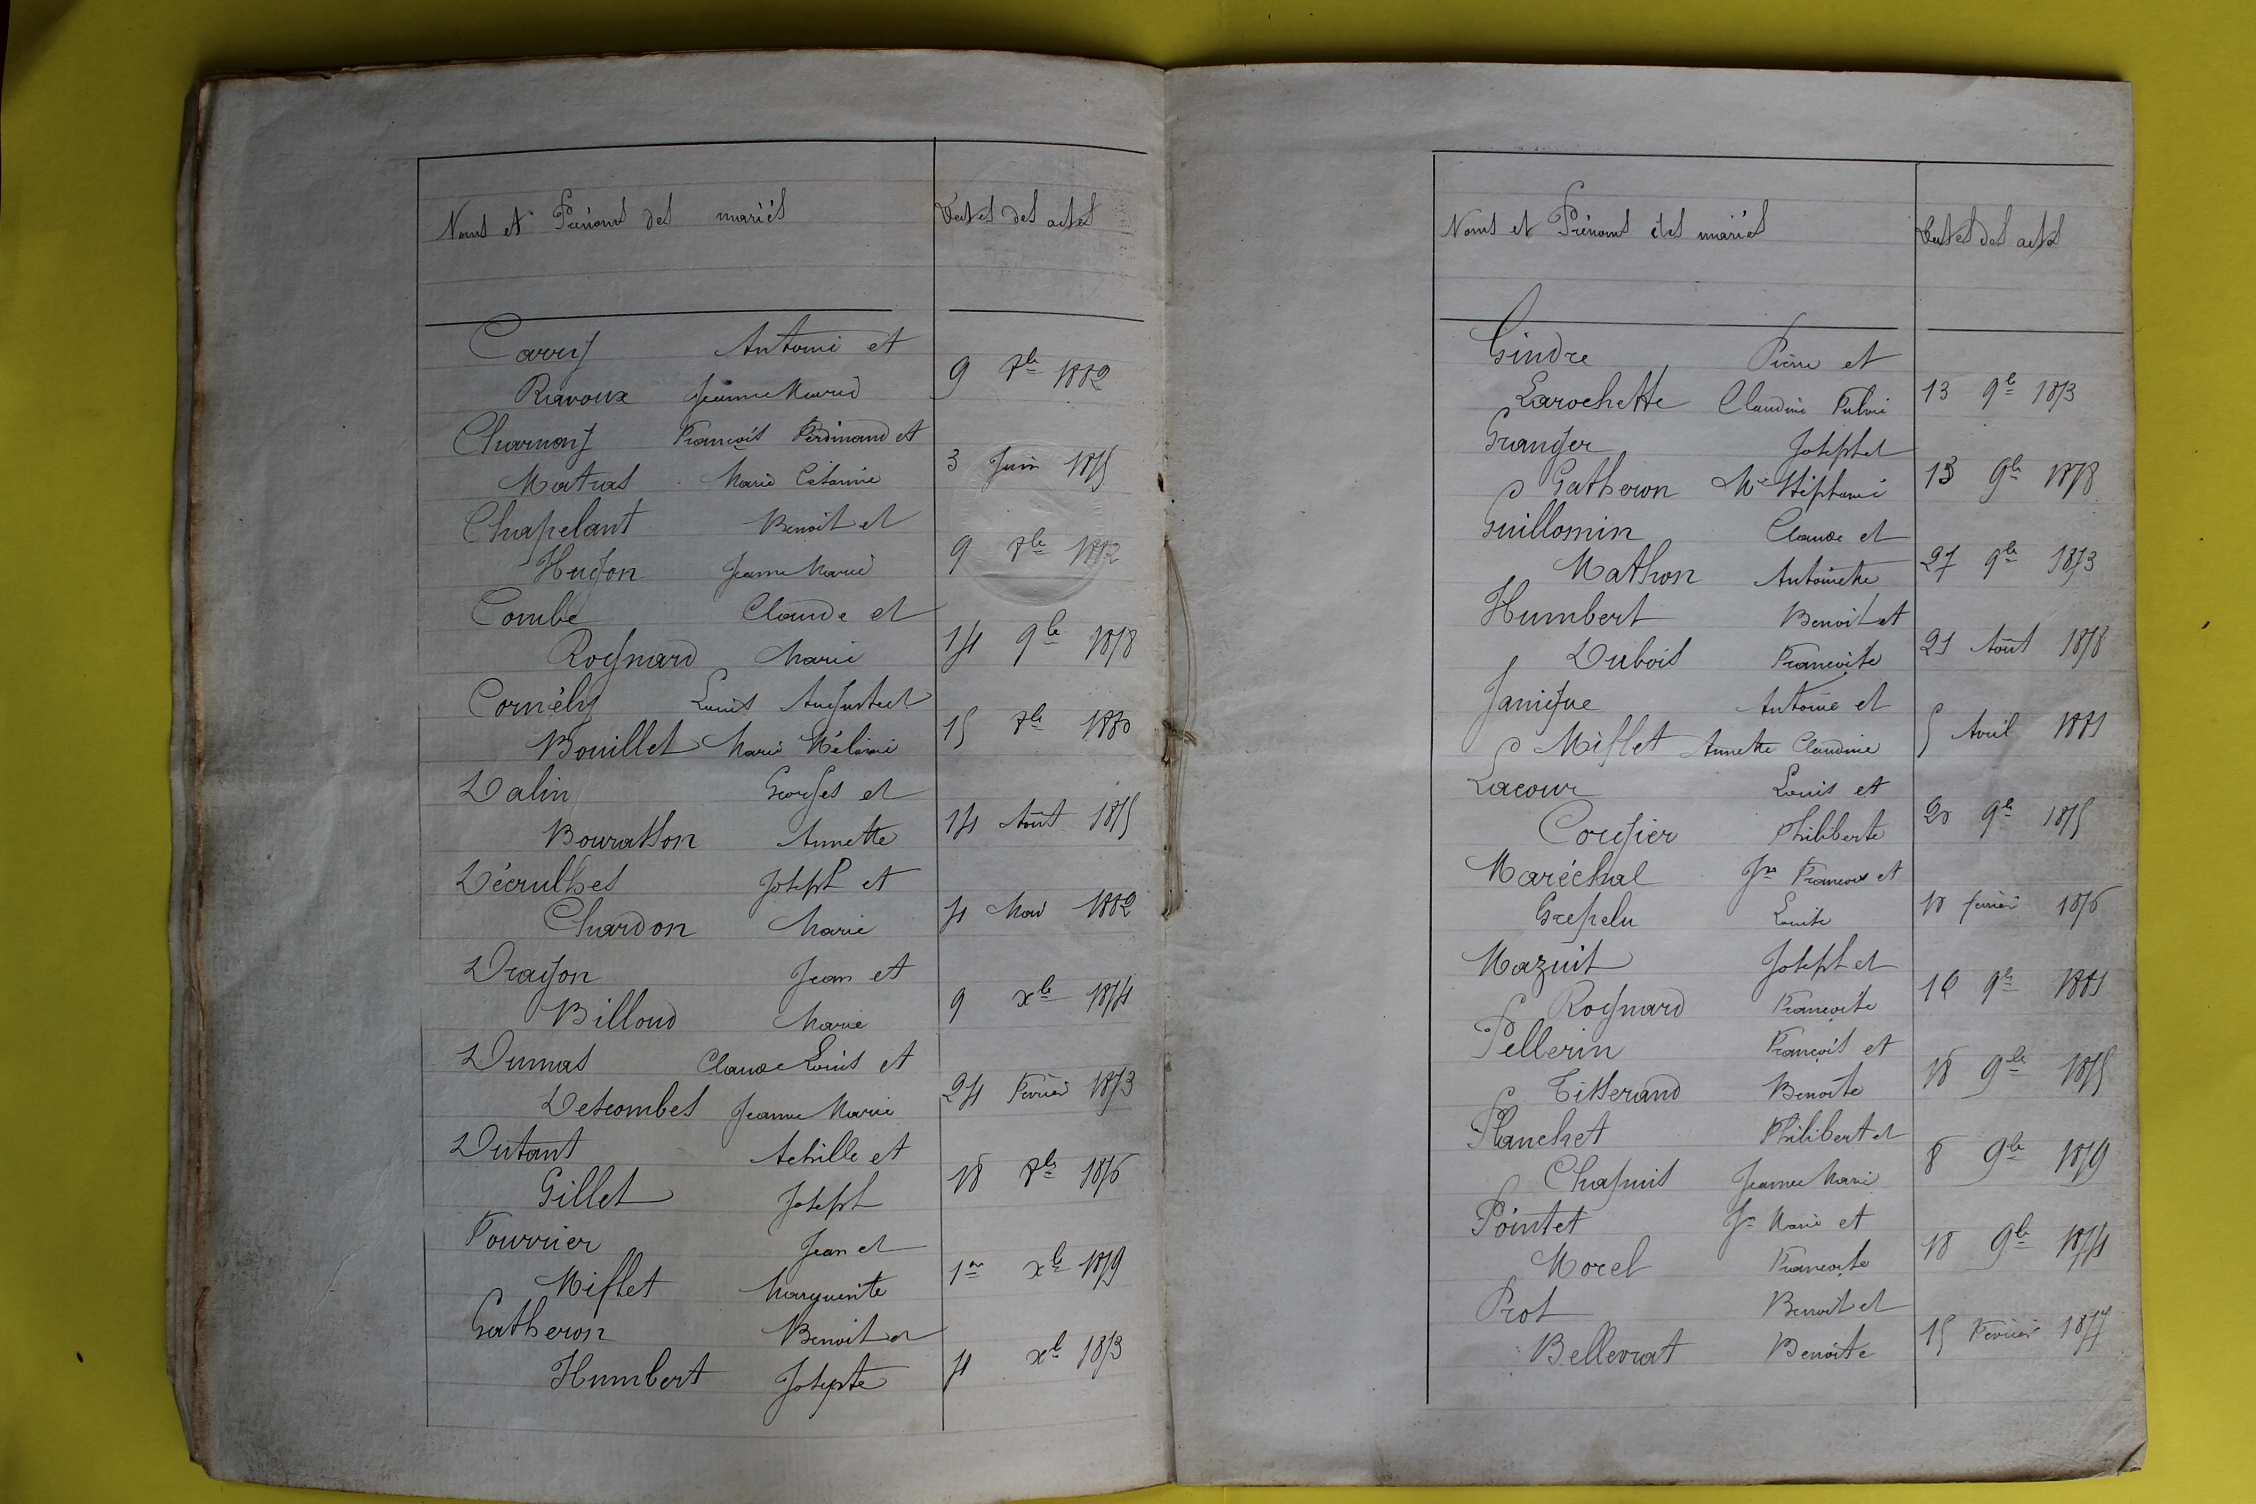 Noms et Prénoms des mariés Dates des actes
Carry Antoine et
9 7bre 1882
Ravoux Jeanne Marie
Charnay François Ferdinand et
3 Juin 1875
Matras Marie
Chapelant Benoit et
9 7bre 1882
Hugon Jeanne Marie
Combe Claude et
14 9bre 1878
Rognard Marie
Cornély Louis Auguste et
15 7bre 1880
Bouillet Marie Mélanie
Dalin Georges et
14 Août 1875
Bourathon Annette
Décrulhes Joseph et
4 Mai 1882
Chardon Marie
Dragon Jean et
9 xbre 1874
Billoud Marie
Dumas Claude Louis et
24 Février 1873
Descombes Jeanne Marie
Dutant Achille et
18 7bre 1876
Gillet Joseph
Fourrier Jean et
1er xbre 1879
Miflet Marguerite
Gatheron Benoit et
4 xbre 1873
Humbert Josepte
Noms et Prénoms des mariés Dates des actes
Gindre Pierre et
13 9bre 1873
Larochette Claudine
Granger Joseph et
13 9bre 1878
Gatheron Mie Stéphanie
Guillomin Claude et
27 9bre 1873
Mathon Antoinette
Humbert Benoit et
21 Août 1878
Dubois Françoise
Janique Antoine et
5 Avril 1881
Miflet Annette Claudine
Lacour Louis et
20 9bre 1875
Corgier Philiberte
Maréchal Jn François et
18 février 1876
Grepelu Louise
Mazuit Joseph et
16 9bre 1881
Rognard Françoise
Pellerin François et
18 9bre 1875
Tisserand Benoite
Planchet Philibert et
8 9bre 1879
Chapuis Jeanne Marie
Pointet Jn Marie et
18 9bre 1874
Morel Françoise
Prot Benoit et
15 Février 1877
Bellevrat Benoite